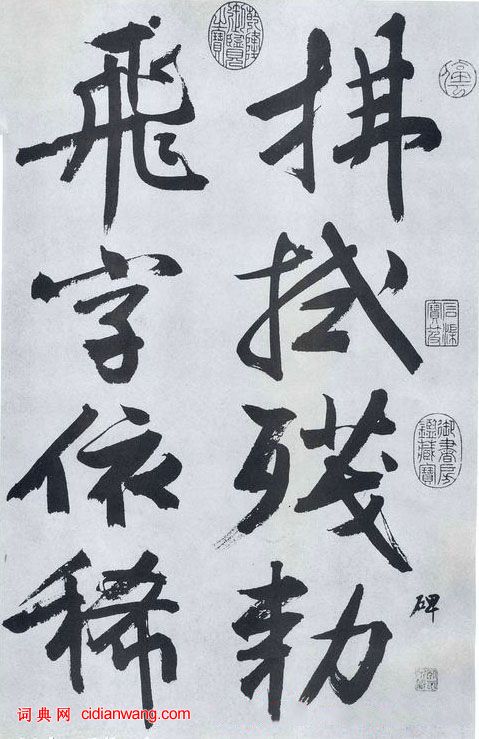 拂拭殘勅
碑
飛字依稀
乾隆御覽之寶
石渠寶笈
御書房鑑藏寶
词典网 cidianwang.com